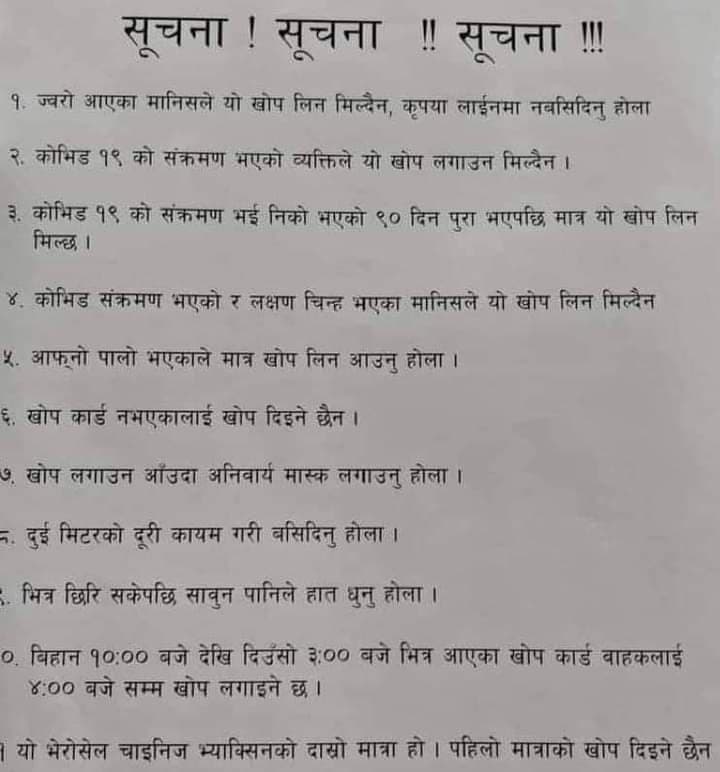 सूचना ! सूचना !! सूचना !!!
१. ज्वरो आएका मानिसले यो खोप लिन मिल्दैन, कृपया लाईनमा नबसिदिनु होला
२. कोभिड १९ को संक्रमण भएको व्यक्तिले यो खोप लगाउन मिल्दैन ।
३. कोभिड १९ को संक्रमण भई निको भएको ९० दिन पुरा भएपछि मात्र यो खोप लिन
मिल्छ ।
४. कोभिड संक्रमण भएको र लक्षण चिन्ह भएका मानिसले यो खोप लिन मिल्दैन
५. आफ्नो पालो भएकाले मात्र खोप लिन आउनु होला ।
६. खोप कार्ड नभएकालाई खोप दिइने छैन ।
७. खोप लगाउन आँउदा अनिवार्य मास्क लगाउनु होला ।
८. दुई मिटरको दूरी कायम गरी बसिदिनु होला ।
९. भित्र छिरि सकेपछि साबुन पानिले हात धुनु होला ।
०. बिहान १०:०० बजे देखि दिउँसो ३:०० बजे भित्र आएका खोप कार्ड वाहकलाई
४:०० बजे सम्म खोप लगाइने छ ।
१ यो भेरोसेल चाइनिज भ्याक्सिनको दास्रो मात्रा हो । पहिलो मात्राको खोप दिइने छैन